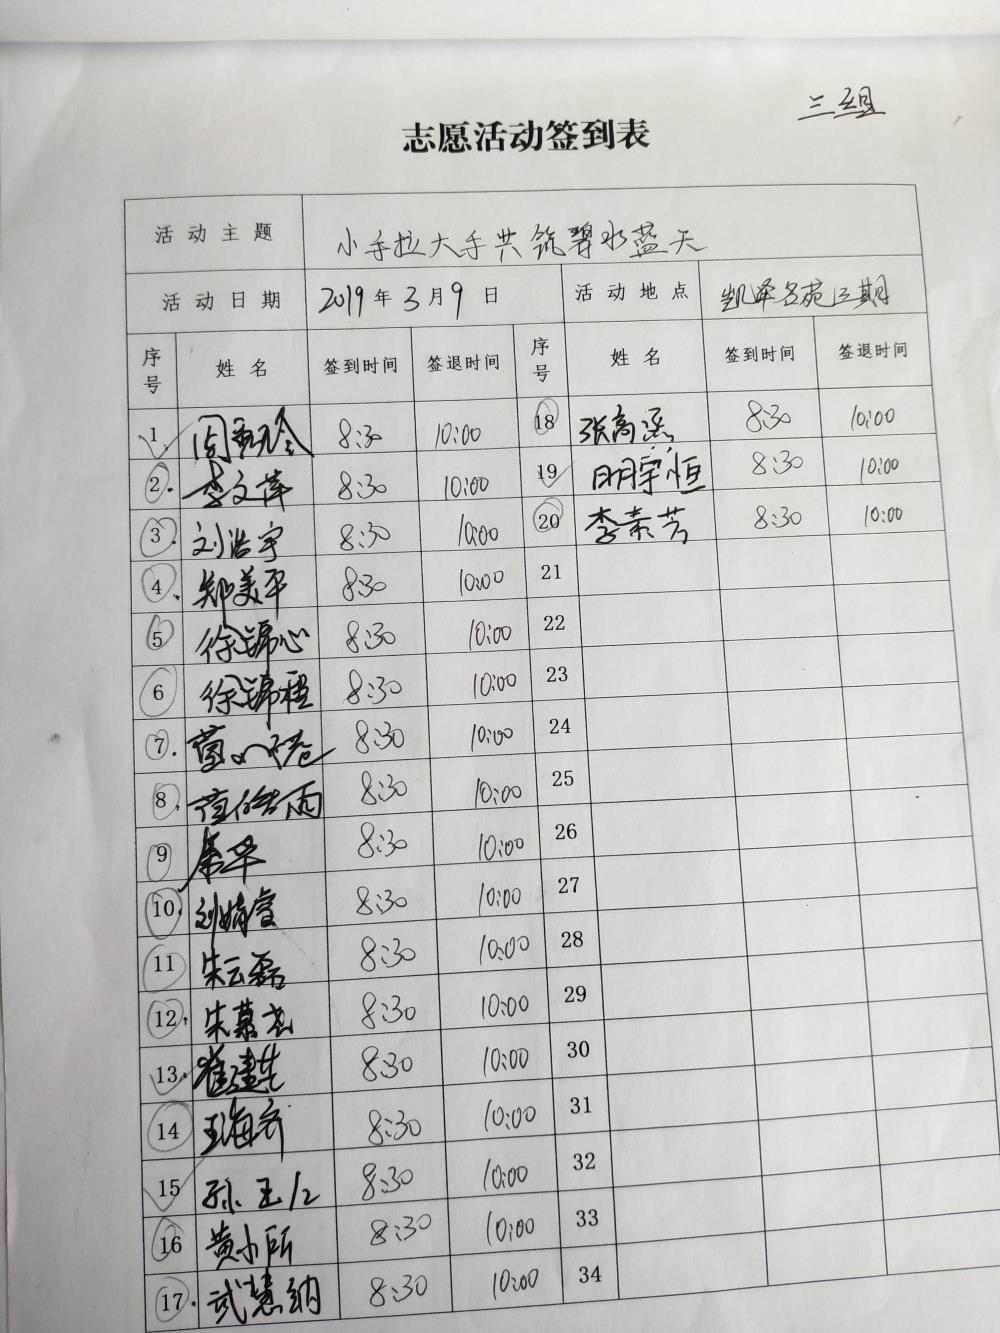 三组
志愿活动签到表
活动主题 小手拉大手共筑碧水蓝天
活动日期 2019年3月9日 活动地点 凯泽名苑三期
序号 姓名 签到时间 签退时间 序号 姓名 签到时间 签退时间
1 8:30 10:00 18 张高遥 8:30 10:00
2 李文萍 8:30 10:00 19 明宇恒 8:30 10:00
3 刘浩宇 8:30 10:00 20 李素芳 8:30 10:00
4 郑美平 8:30 10:00 21
5 徐锦心 8:30 10:00 22
6 徐锦程 8:30 10:00 23
7 8:30 10:00 24
8 8:30 10:00 25
9 秦华 8:30 10:00 26
10 刘婧睿 8:30 10:00 27
11 朱云磊 8:30 10:00 28
12 朱慕尧 8:30 10:00 29
13 崔建芸 8:30 10:00 30
14 王海齐 8:30 10:00 31
15 孙玉 8:30 10:00 32
16 黄小所 8:30 10:00 33
17 武慧纳 8:30 10:00 34